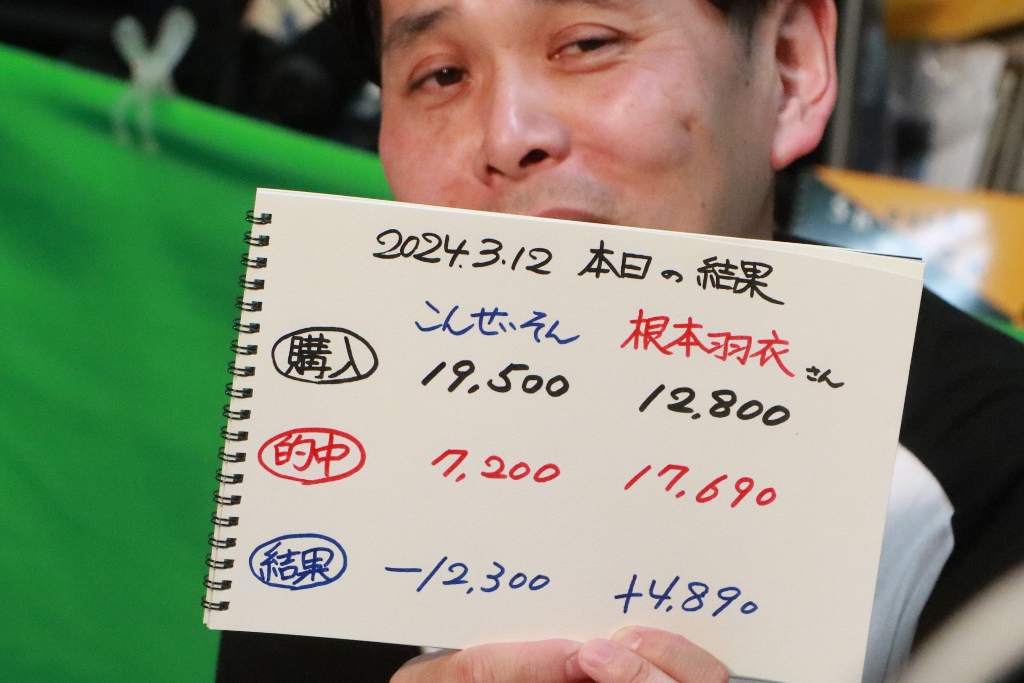 2024.3.12 本日の結果
こんせいそん 根本羽衣さん
購入 19,500 12,800
的中 7,200 17,690
結果 -12,300 +4,890